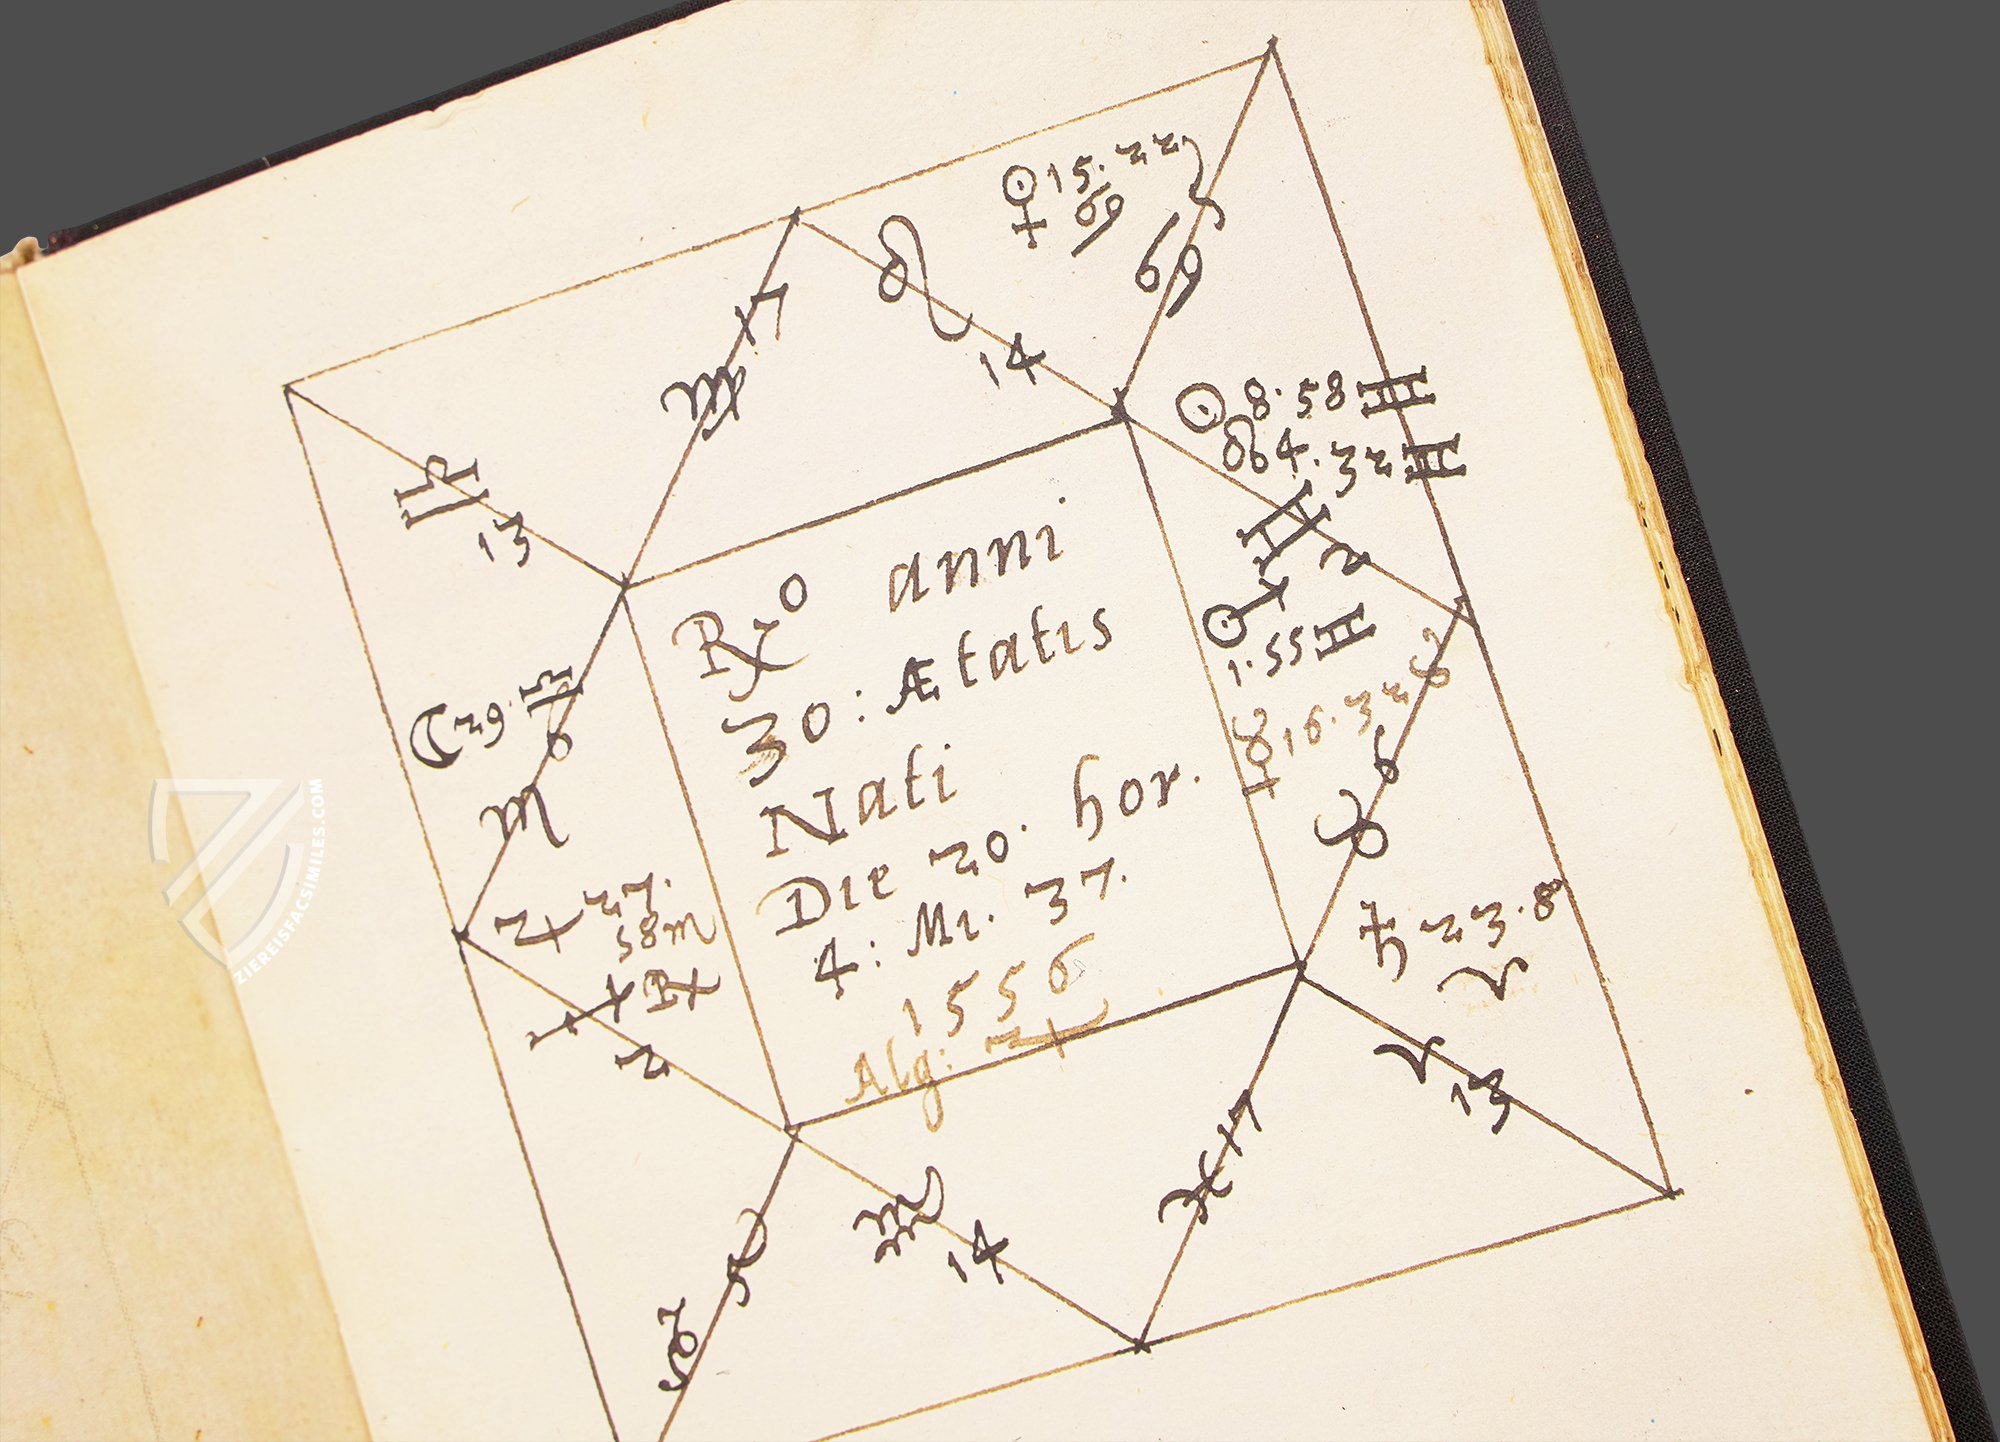 ♀ 15. 22
♋
♋
♌
14
♍ 17
♎
13
☽ 29. ♎
9
♏
♃ 27.
58 ♏
♐ ℞
2
♑ 5
♒
14
♓ 17
♈
13
♄ 23. 8
♈
♉ 9
☿ 16. 32 ♉
☉ 8. 58 ♊
☊ 4. 32 ♊
♊
2
♂
1. 55 ♊
℞o anni
30: Ætatis
Nati
Die 20. hor.
4: Mi. 37.
1556
Alg: ♃
ZIEREISFACSIMILES.COM